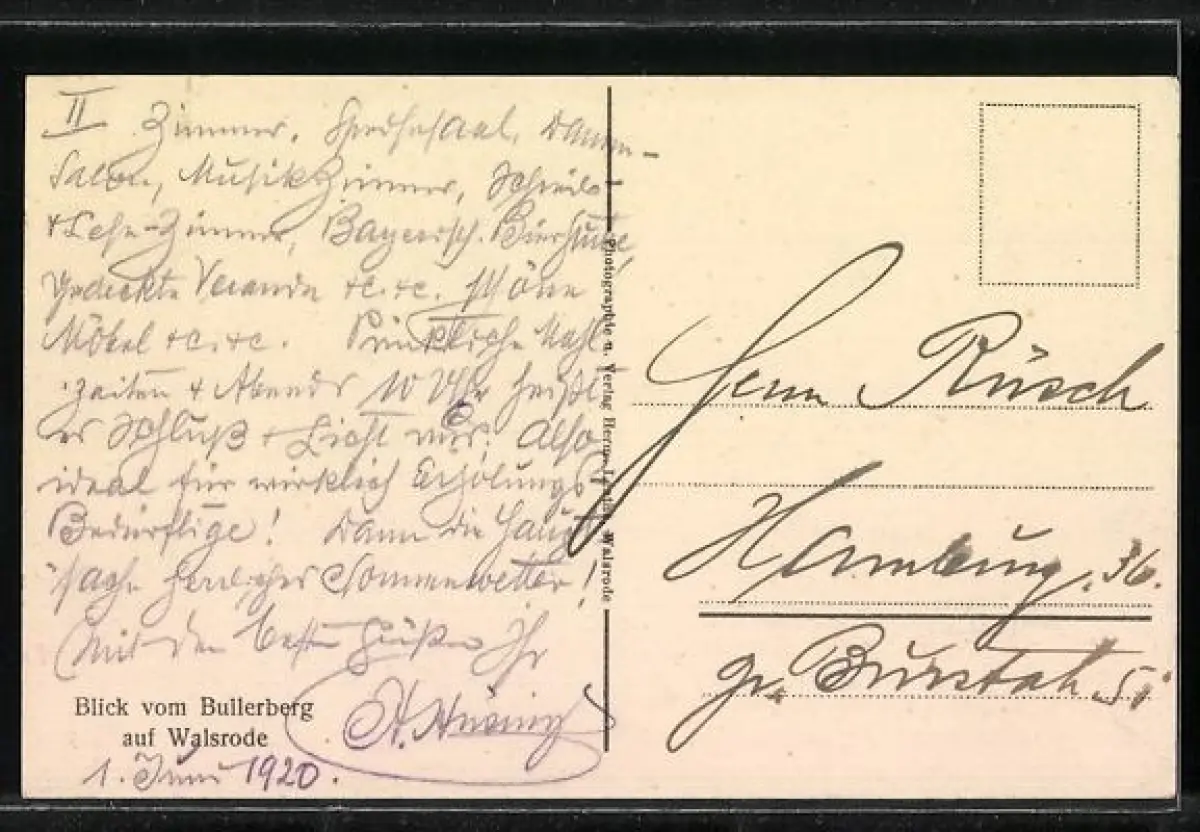 II Zimmer, Speisesaal, Damen-
Salon, Musikzimmer, Schreib-
+ Lese-Zimmer, Bayerisch. Bierstube,
gedeckte Veranda +c. +c. schöne
Möbel +c. +c. Pünktliche Mahl
zeiten + Abends 10 Uhr heißt
es Schluß + Licht aus! Also
ideal für wirklich Erholungs-
Bedürftige! Dann die Haupt
sache herrliches Sommerwetter!
Mit den besten Grüßen Ihr
Blick vom Bullerberg
auf Walsrode
1. Juni 1920.
Photographie u. Verlag Herm. Walsrode
Herrn Rüsch
Hamburg, 36.
gr. Burstah 51